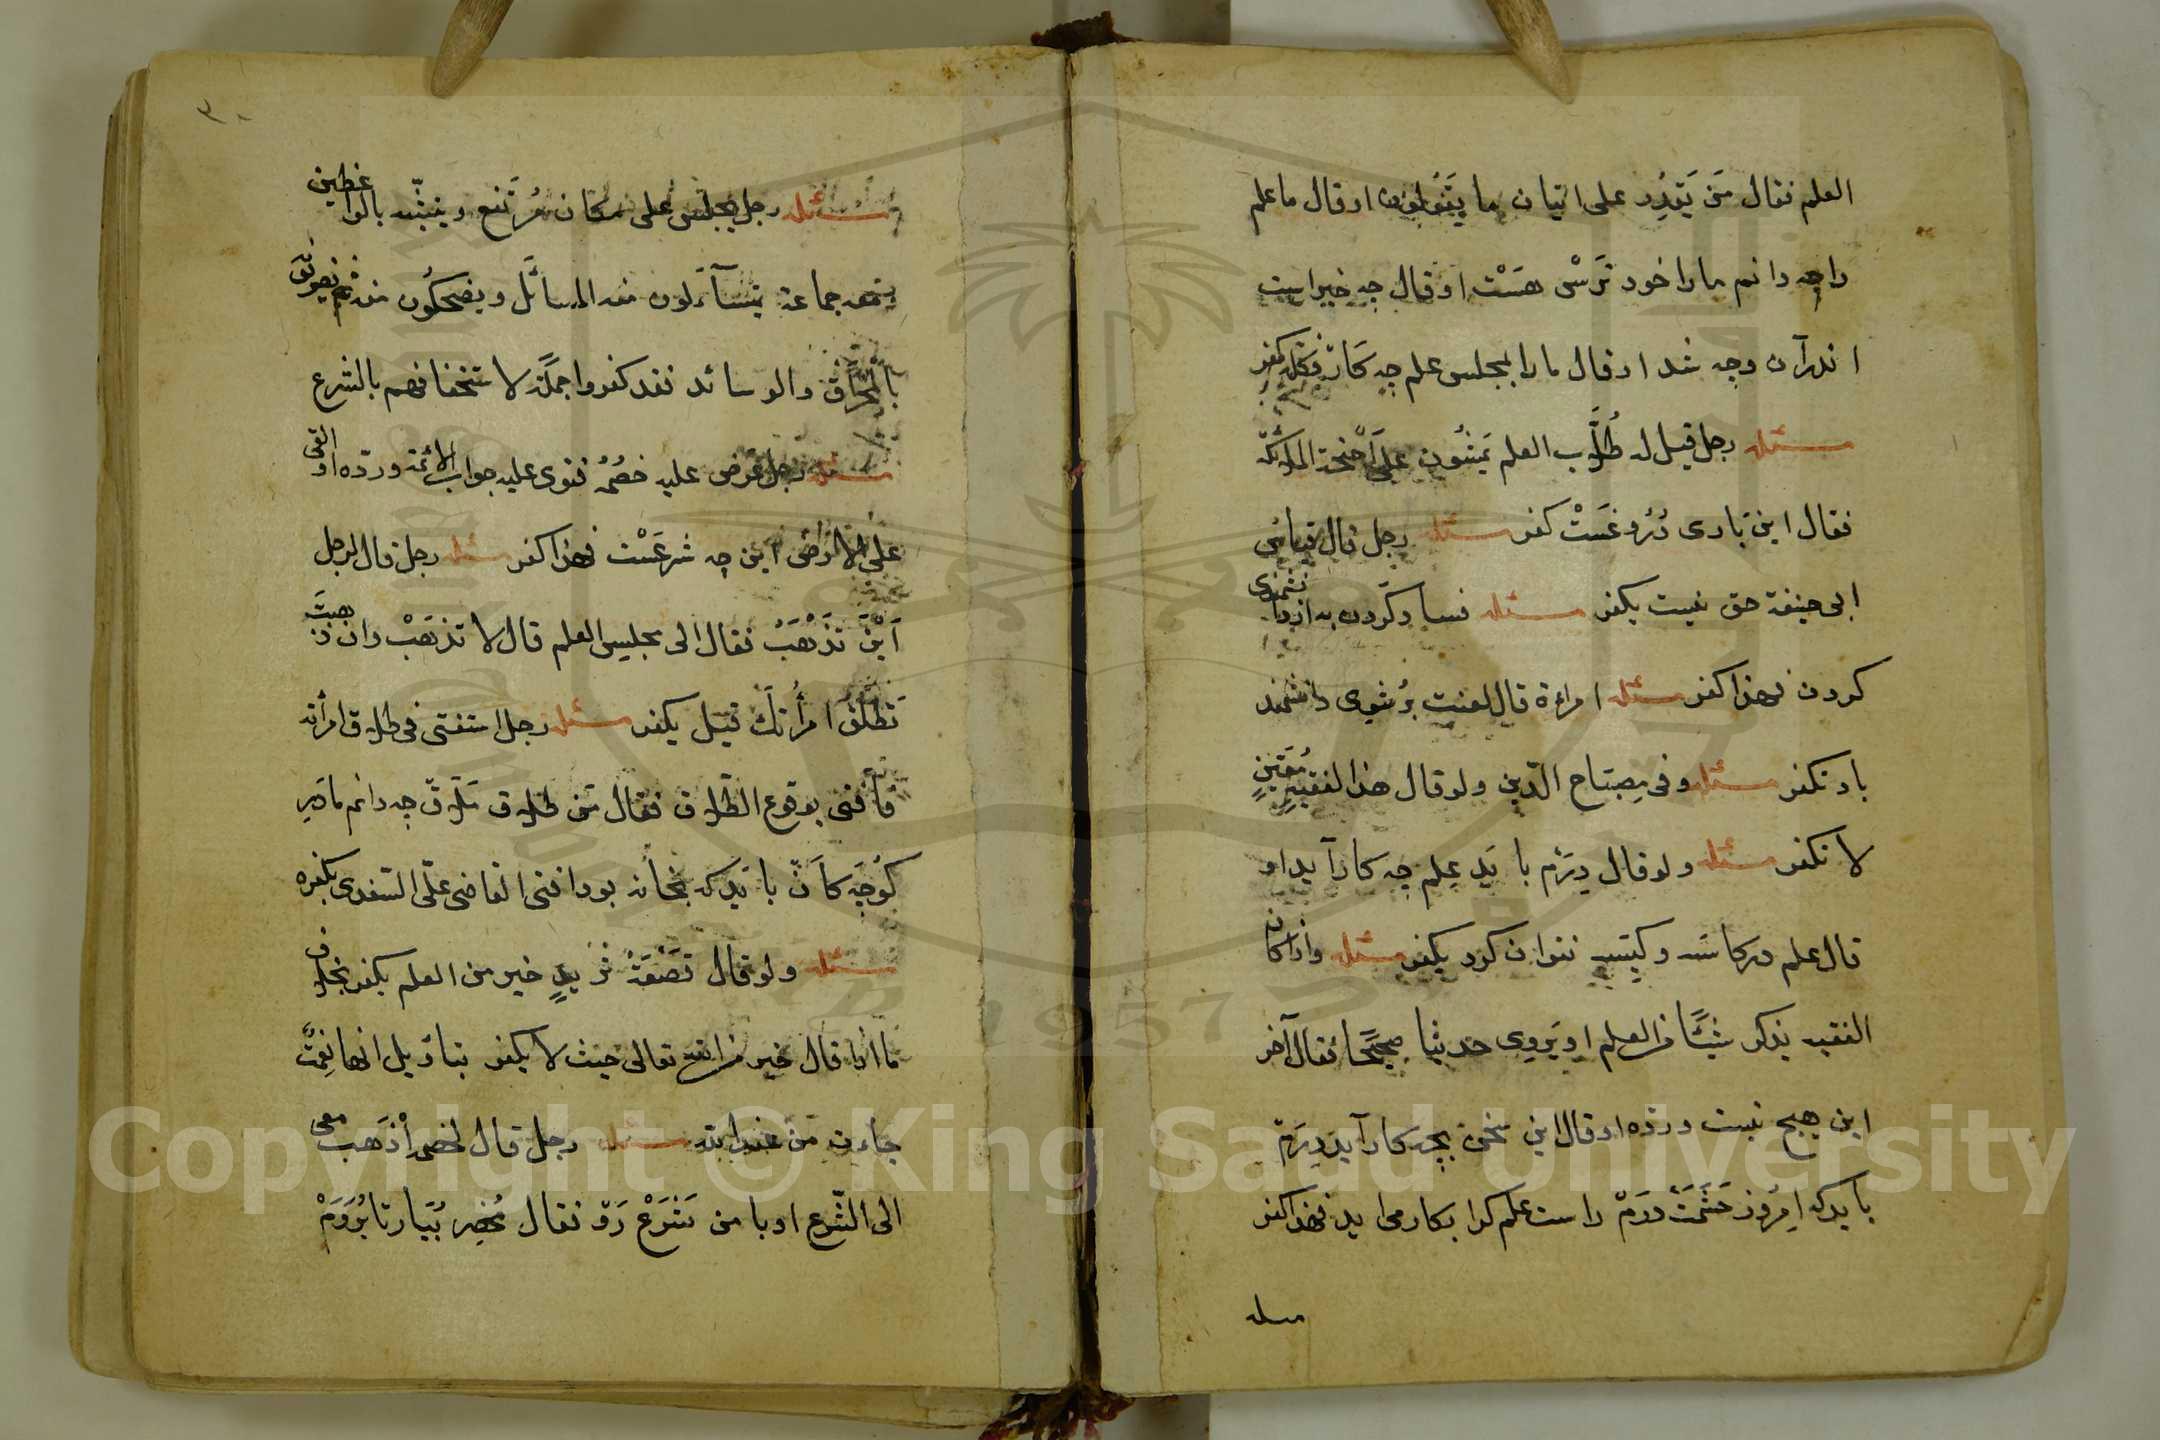 العلم فقال مَن يَقدِر على اتيان ما يَقُولون او قال ما علم
را چه دانم ما را خود تَرسْ هَسْت او قال چه خيراست
اندرآن وچه شد او قال ما را بمجلس علم چه كار فكله كفر
مسئله رجل قيل له طُلّاب العلم يَمشُون على اَجْنحة الملائكة
فقال اين بارى دُرُوغَسْتْ كفر مسئله رجل قال قياس
ابى حنيفة حق نيست يكفر مسئله فساد كردن به از دانشمندى
كردن فهذا كفر مسئله امراءة قال لعنت بر شوى دانشمند
باد تكفر مسئله وفى مصباح الدّين ولو قال هذا لفقيهٍ مُعَيَّنٍ
لا تكفر مسئله ولو قال دِرَم بايد علم چه كار آيد او
قال علم در كاسه وكيسه نتوان كرد يكفر مسئله واذا كان
الفقيه يذكر شيئًا من العلم او يَروِى حديثا صحيحًا فقال آخر
اين هيچ نيست وردّه او قال اين سخن بچه كار آيد دِرَم
بايد كه امروز حَشْمَتْ دِرَمْ راست علم كرا بكار مى ايد فهذا كفر
مسله
٣٠
مسئله رجل يجلس على مكان مُرتَفع ويتشبّه بالواعظين
ومعه جماعة يتسآءلون منه المسائل ويضحكُون منه ثم يضربونه
بالمخراق والوسائد فقد كفروا جملةً لاستخفافهم بالشرع
مسئله رجل عَرض عليه خصمُه فتوى عليه جواب الائمة وردّه او القى
على الارض اين چه شرعَسْت فهذا كفر مسئله رجل قال لرجل
اَيْنَ تَذْهَبُ فقال الى مجلس العلم قال لا تذهَبْ وان ذهبتَ
تطلّقُ امرأتك قيل يكفر مسئله رجل استفتى فى طلاق امرأته
فأفتى بوقوع الطّلاق فقال مَن طلاق مَلاق چه دانم مادر
كُوچكَان بايد كه بخانه بود افتى القاضى علىّ السّغدى بكفره
مسئله ولو قال قَصْعَةُ ثريدٍ خير من العلم يكفر بخلاف
ما اذا قال خير من الله تعالى حيث لا يكفر بتأويل انها نِعْمَة
جاءت من عند الله مسئله رجل قال لخصمه اِذهَب معى
الى الشّرع او با من بشَرعْ رَوْ فقال مُحْضِر بيَار تا بُرَوَمْ